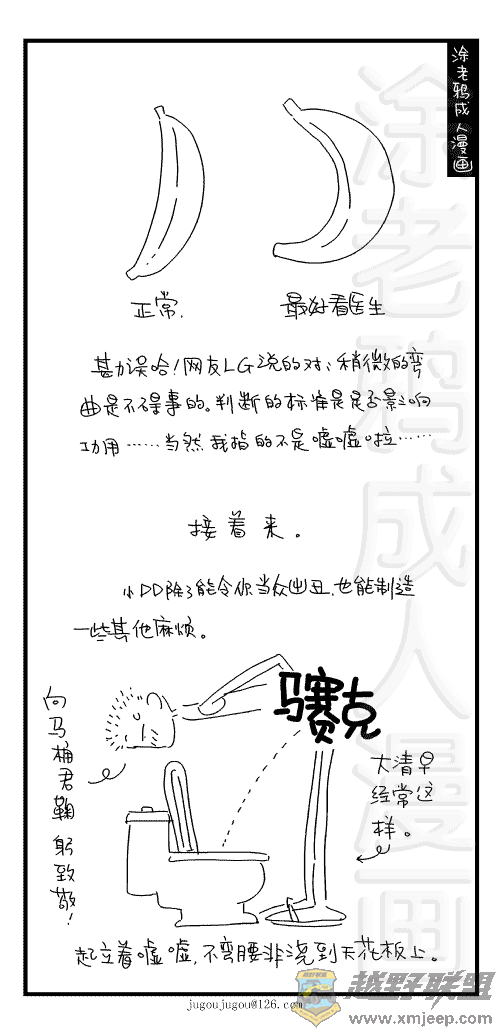 涂老鸦成人漫画
涂老鸦成人漫画
正常.
最好看医生
甚力误哈!网友LG说的对:稍微的弯
曲是不碍事的。判断的标准是是否影响
功用……当然我指的不是嘘嘘啦……
接着来。
小DD除了能令你当众出丑,也能制造
一些其他麻烦。
马赛克
向马桶君鞠躬致敬!
大清早
经常这
样。
起立着嘘嘘,不弯腰非浇到天花板上。
jugoujugou@126.com
越野联盟
www.xmjeep.com